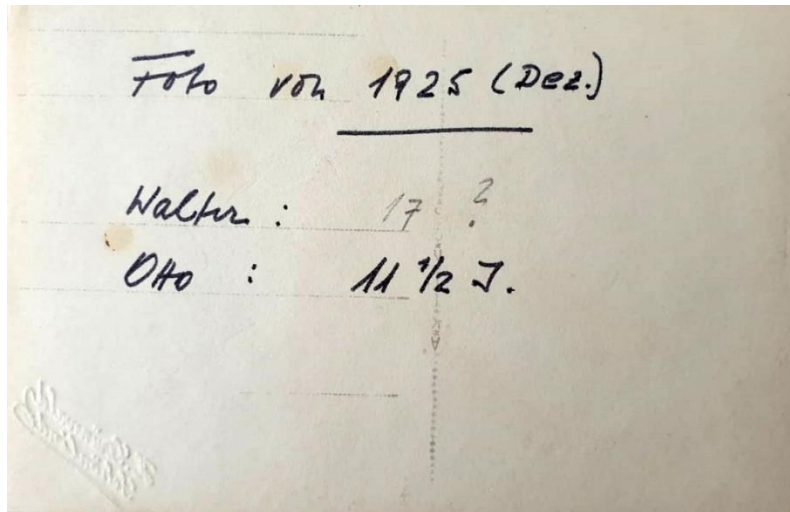 Foto von 1925 (Dez.)
Walter : 17 ?
Otto : 11 1/2 J.